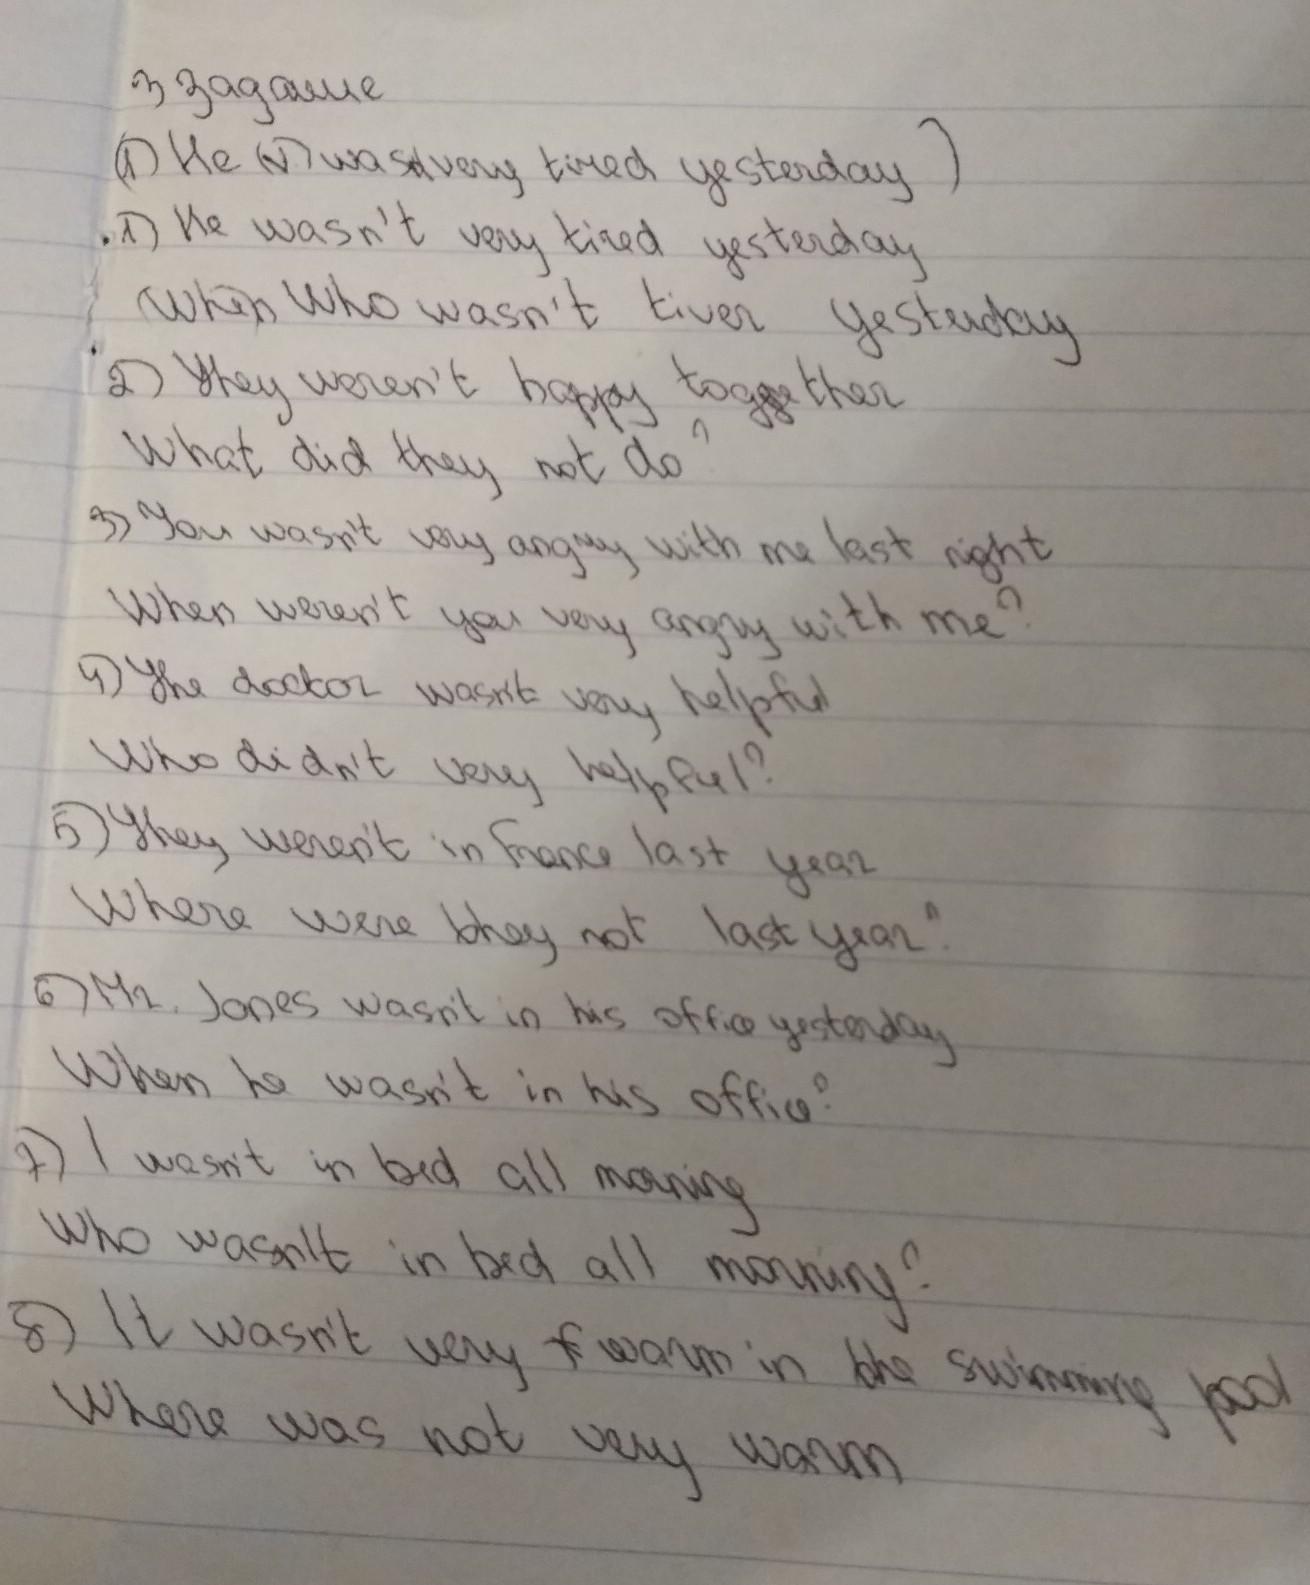 3 задание
(1) He (v) was very tired yesterday )
1) He wasn't very tired yesterday
When Who wasn't tiver yesterday
2) They weren't happy together
What did they not do?
3) You wasn't very angry with me last night
When weren't you very angry with me?
4) The doctor wasn't very helpful
Who didn't very helpful?
5) They weren't in France last year
Where were they not last year?
6) Mr. Jones wasn't in his office yesterday
When he wasn't in his office?
7) I wasn't in bed all morning
Who wasn't in bed all morning?
8) It wasn't very warm in the swimming pool
Where was not very warm